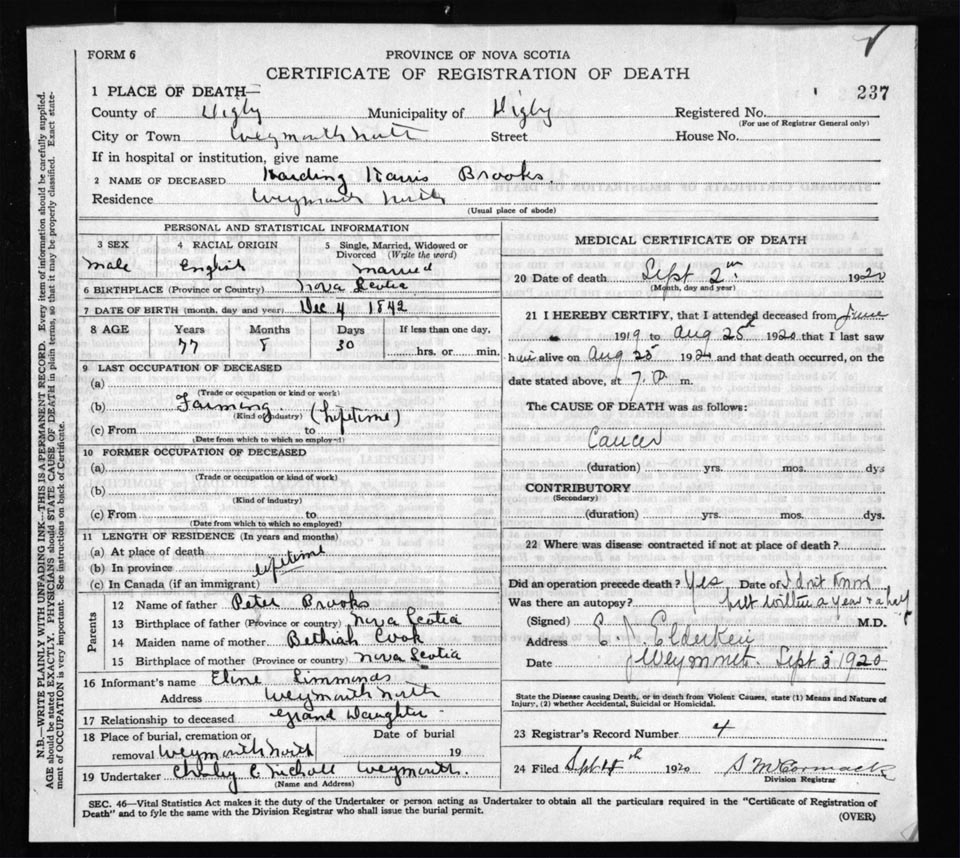 FORM 6
PROVINCE OF NOVA SCOTIA
CERTIFICATE OF REGISTRATION OF DEATH
237
1 PLACE OF DEATH—
County of Digby Municipality of Digby Registered No.
(For use of Registrar General only)
City or Town Weymouth North Street House No.
If in hospital or institution, give name
2 NAME OF DECEASED Harding Harris Brooks.
Residence Weymouth North
(Usual place of abode)
PERSONAL AND STATISTICAL INFORMATION
3 SEX 4 RACIAL ORIGIN 5 Single, Married, Widowed or Divorced (Write the word)
Male English Married
6 BIRTHPLACE (Province or Country) Nova Scotia
7 DATE OF BIRTH (month, day and year) Dec 4 1842
8 AGE Years Months Days If less than one day,
77 8 30 hrs. or min.
9 LAST OCCUPATION OF DECEASED
(a)
(Trade or occupation or kind of work)
(b) Farming. (lifetime)
(Kind of industry)
(c) From to
(Date from which to which so employed)
10 FORMER OCCUPATION OF DECEASED
(a)
(Trade or occupation or kind of work)
(b)
(Kind of industry)
(c) From to
(Date from which to which so employed)
11 LENGTH OF RESIDENCE (In years and months)
(a) At place of death
(b) In province lifetime
(c) In Canada (if an immigrant)
Parents
12 Name of father Peter Brooks
13 Birthplace of father (Province or country) Nova Scotia
14 Maiden name of mother Bethiah Cook
15 Birthplace of mother (Province or country) Nova Scotia
16 Informant's name Eline Simmonds
Address Weymouth North
17 Relationship to deceased Grand Daughter
18 Place of burial, cremation or Date of burial
removal Weymouth North 19
19 Undertaker Nicholl Weymouth.
(Name and Address)
MEDICAL CERTIFICATE OF DEATH
20 Date of death Sept 2nd 1920
(Month, day and year)
21 I HEREBY CERTIFY, that I attended deceased from June
1919 to Aug 25th 1920 that I last saw
him alive on Aug 25 1920 and that death occurred, on the
date stated above, at 7. P m.
The CAUSE OF DEATH was as follows:
Cancer
(duration) yrs. mos. dys
CONTRIBUTORY
(Secondary)
(duration) yrs. mos. dys.
22 Where was disease contracted if not at place of death?
Did an operation precede death? Yes Date of I don't know
Was there an autopsy? but within a year & a half
(Signed) E J Elderkin M.D.
Address Weymouth.
Date Sept 3 1920
State the Disease causing Death, or in death from Violent Causes, state (1) Means and Nature of
Injury, (2) whether Accidental, Suicidal or Homicidal.
23 Registrar's Record Number 4
24 Filed Sept 4th 1920 S McCormack
Division Registrar
SEC. 46—Vital Statistics Act makes it the duty of the Undertaker or person acting as Undertaker to obtain all the particulars required in the "Certificate of Registration of
Death" and to fyle the same with the Division Registrar who shall issue the burial permit.
(OVER)
N.B.—WRITE PLAINLY WITH UNFADING INK—THIS IS A PERMANENT RECORD. Every item of information should be carefully supplied.
AGE should be stated EXACTLY. PHYSICIANS should STATE CAUSE OF DEATH in plain terms, so that it may be properly classified. Exact state-
ment of OCCUPATION is very important. See instructions on back of Certificate.